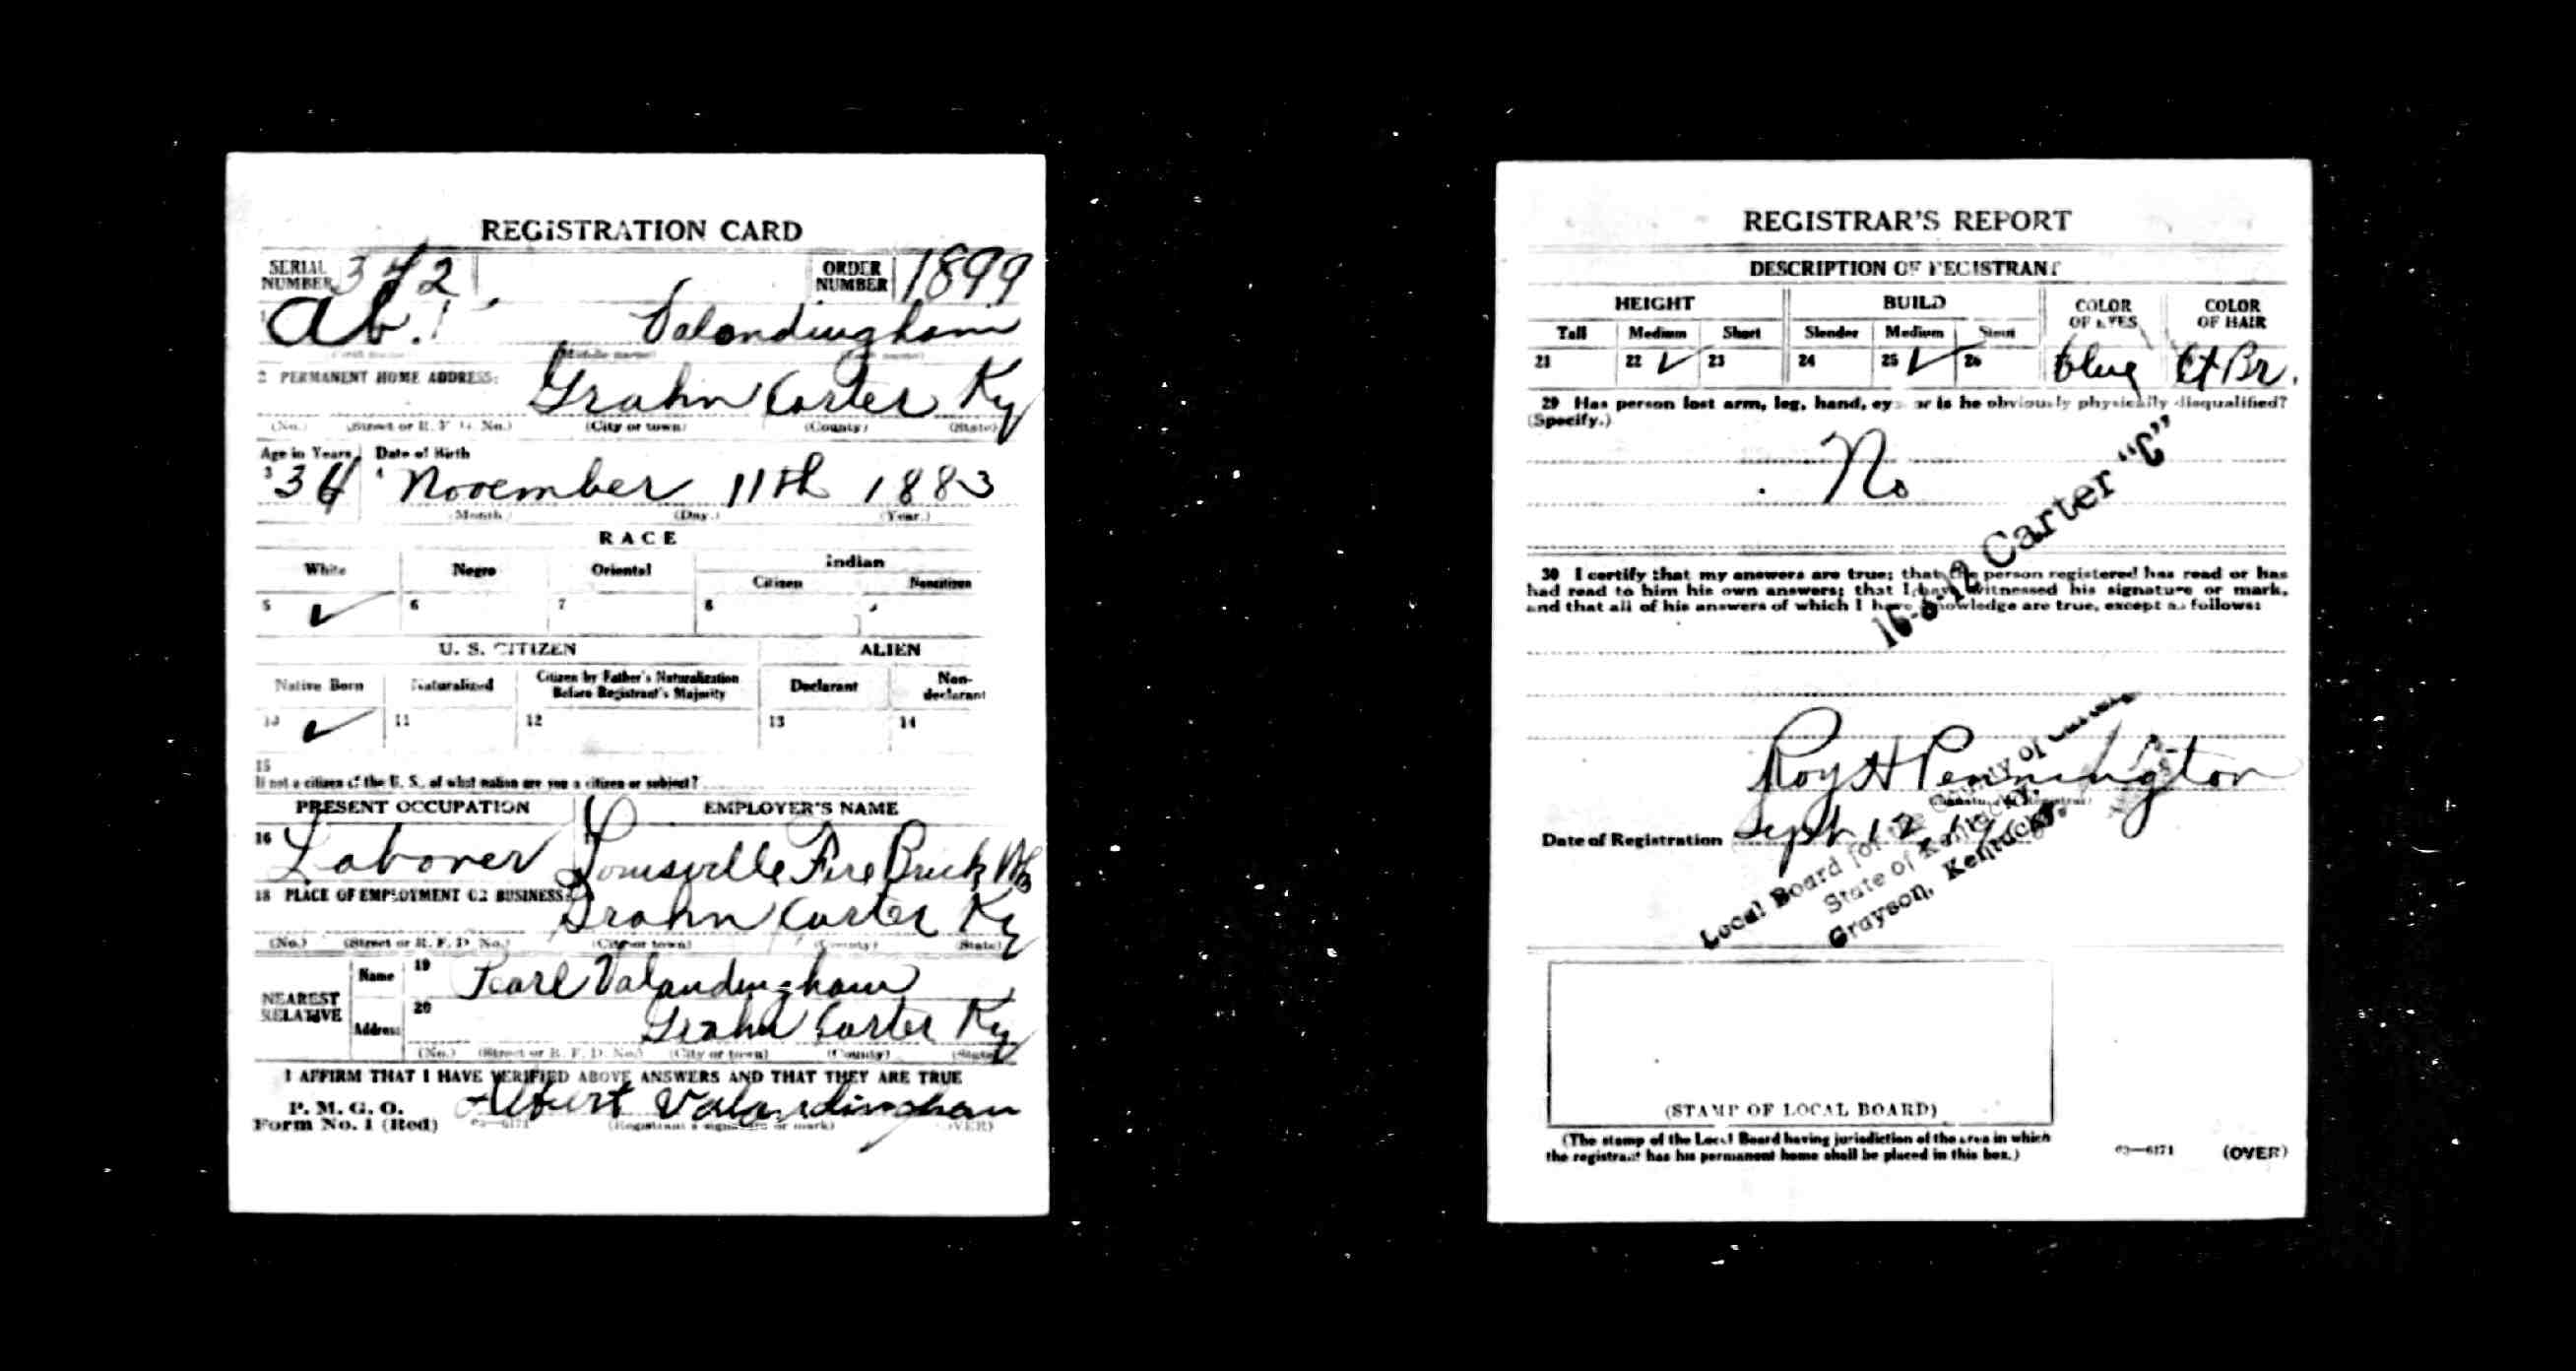 REGISTRATION CARD
SERIAL NUMBER 342 ORDER NUMBER 1899
1 Ab. Valandingham
(Middle name)
2 PERMANENT HOME ADDRESS:
Grahn Carter Ky
(No.) (Street or R. F. D. No.) (City or town) (County) (State)
Age in Years Date of Birth
3 34 4 November 11th 1883
(Month.) (Day.) (Year.)
RACE
White Negro Oriental Indian
Citizen Noncitizen
5 ✓ 6 7 8
U. S. CITIZEN ALIEN
Native Born Naturalized Citizen by Father's Naturalization Before Registrant's Majority Declarant Non-declarant
10 ✓ 11 12 13 14
15
If not a citizen of the U. S., of what nation are you a citizen or subject?
PRESENT OCCUPATION EMPLOYER'S NAME
16 Laborer Louisville Fire Brick
18 PLACE OF EMPLOYMENT OR BUSINESS:
Grahn Carter Ky
(No.) (Street or R. F. D. No.) (City or town) (County) (State)
NEAREST RELATIVE
Name 19 Pearl Valandingham
Address 20 Grahn Carter Ky
(No.) (Street or R. F. D. No.) (City or town) (County) (State)
I AFFIRM THAT I HAVE VERIFIED ABOVE ANSWERS AND THAT THEY ARE TRUE
P. M. G. O.
Form No. 1 (Red) Albert Valandingham
03—6171 (Registrant's signature or mark) (OVER)
REGISTRAR'S REPORT
DESCRIPTION OF REGISTRANT
HEIGHT BUILD COLOR OF EYES COLOR OF HAIR
Tall Medium Short Slender Medium Stout
21 22 ✓ 23 24 25 ✓ 26 blue Lt Br.
29 Has person lost arm, leg, hand, eye, or is he obviously physically disqualified?
(Specify.)
No
16-6-12 Carter "C"
30 I certify that my answers are true; that the person registered has read or has
had read to him his own answers; that I have witnessed his signature or mark,
and that all of his answers of which I have knowledge are true, except as follows:
Roy H Pennington
(Signature of Registrar)
Date of Registration Sept 12 1918
Local Board for the County of Carter
State of Kentucky,
Grayson, Kentucky.
(STAMP OF LOCAL BOARD)
(The stamp of the Local Board having jurisdiction of the area in which
the registrant has his permanent home shall be placed in this box.)
03—6171 (OVER)